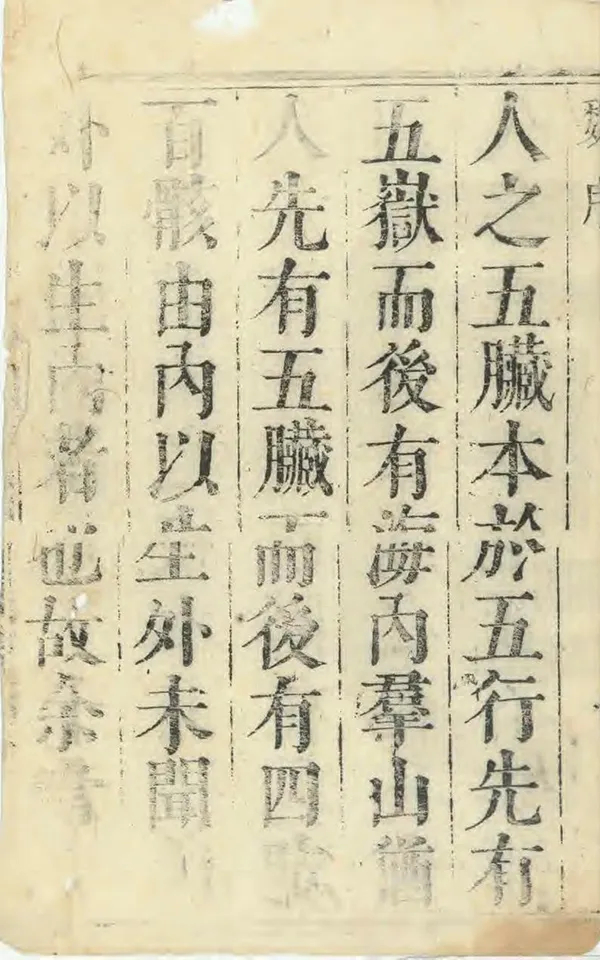 人之五臟本於五行先有
五嶽而後有海內羣山猶
人先有五臟而後有四
百骸由內以生外未聞
外以生內者也故余